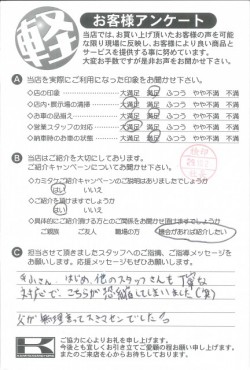 軽
お客様アンケート
当店では、お買い上げ頂いたお客様の声を可能
な限り現場に反映し、お客様により良い商品と
サービスを提供する事に努めています。
大変お手数ですが是非お声をお聞かせ下さい。
A 当店を実際にご利用になった印象をお聞かせ下さい。
◇店の印象 大満足 満足 ふつう やや不満 不満
◇店内・展示場の清掃 大満足 満足 ふつう やや不満 不満
◇お車の品揃え 大満足 満足 ふつう やや不満 不満
◇営業スタッフの対応 大満足 満足 ふつう やや不満 不満
◇納車時のお車の状態 大満足 満足 ふつう やや不満 不満
B 当店はご紹介を大切にしております。
ご紹介キャンペーンについてお聞かせ下さい。
◇カミタケご紹介キャンペーンのご説明はありましたでしょうか
はい いいえ
◇ご紹介を頂けますでしょうか
はい いいえ
◇具体的にご紹介頂ける方とのご関係をお聞かせ頂けますでしょうか
ご親族 ご友人 職場の方 機会があれば紹介したい
C 担当させて頂きましたスタッフへのご指摘、ご指導メッセージを
お願いします。応援メッセージもぜひお願いします。
さん はじめ、他のスタッフさんも丁寧な
対応で、こちらが恐縮してしまいました(笑)
父が
スミマセンでした
K
ご協力に心よりお礼を申し上げます。
今後とも宜しくお引き立てご愛顧の程お願い申し上げます。
またのご来店を心からお待ちしております。